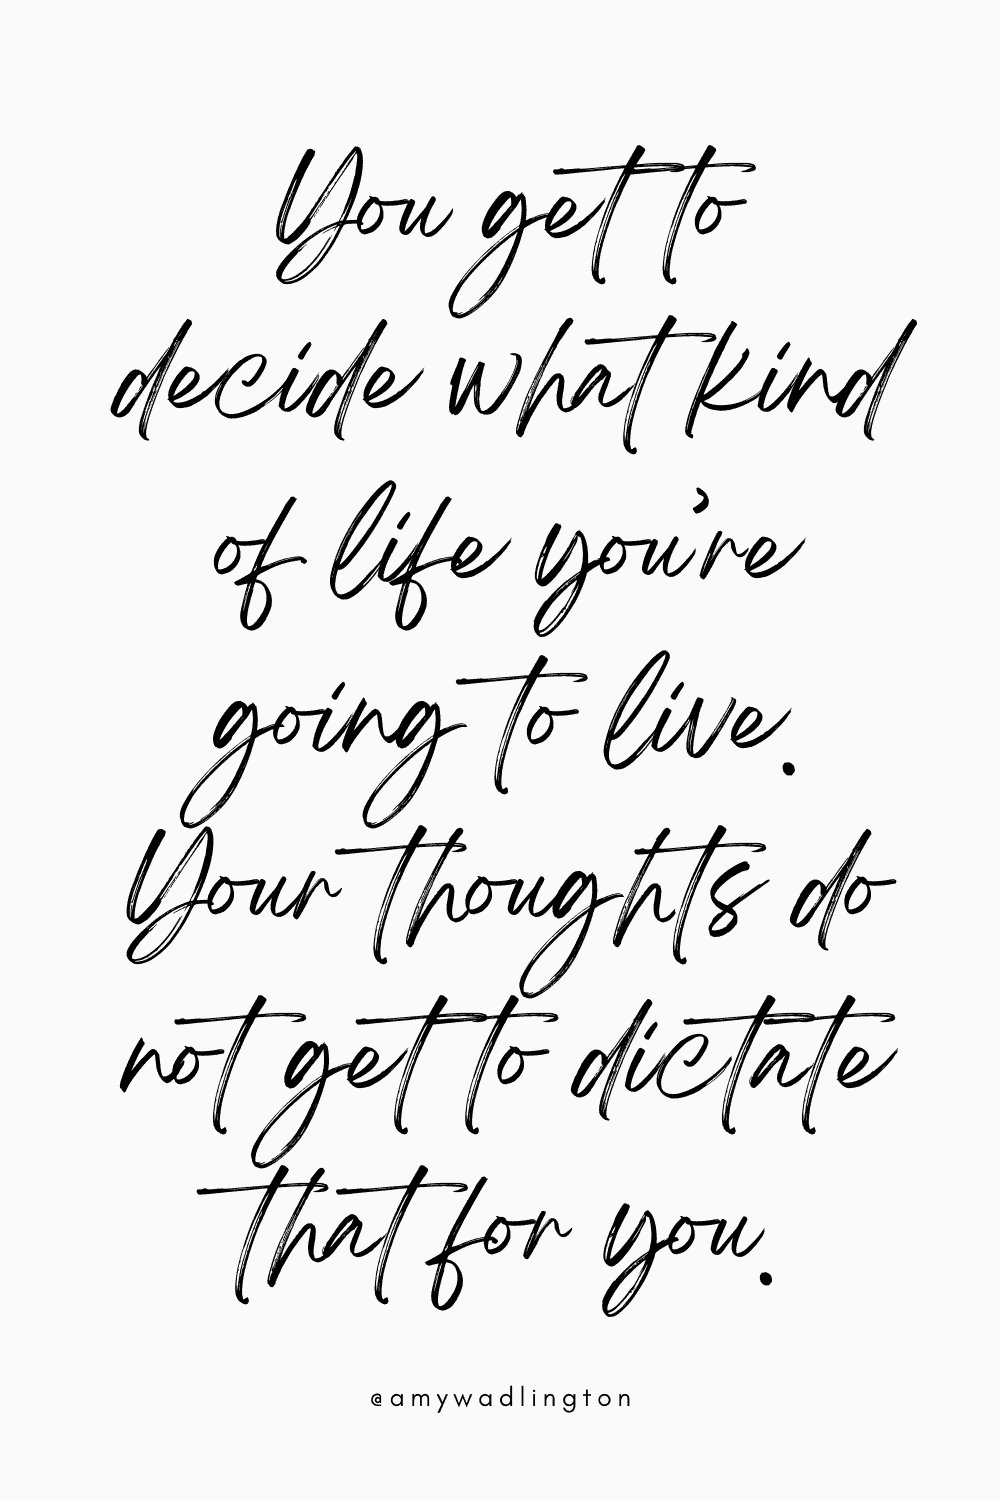 You get to
decide what kind
of life you're
going to live.
Your thoughts do
not get to dictate
that for you.
@amywadlington